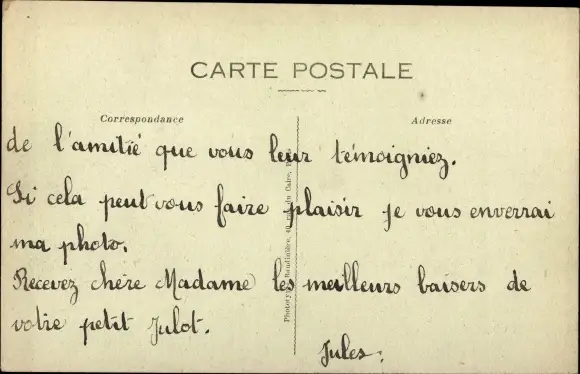 CARTE POSTALE
Correspondance
Adresse
de l'amitié que vous leur témoigniez.
Si cela peut vous faire plaisir je vous enverrai
ma photo.
Recevez chère Madame les meilleurs baisers de
votre petit Julot.
Jules.